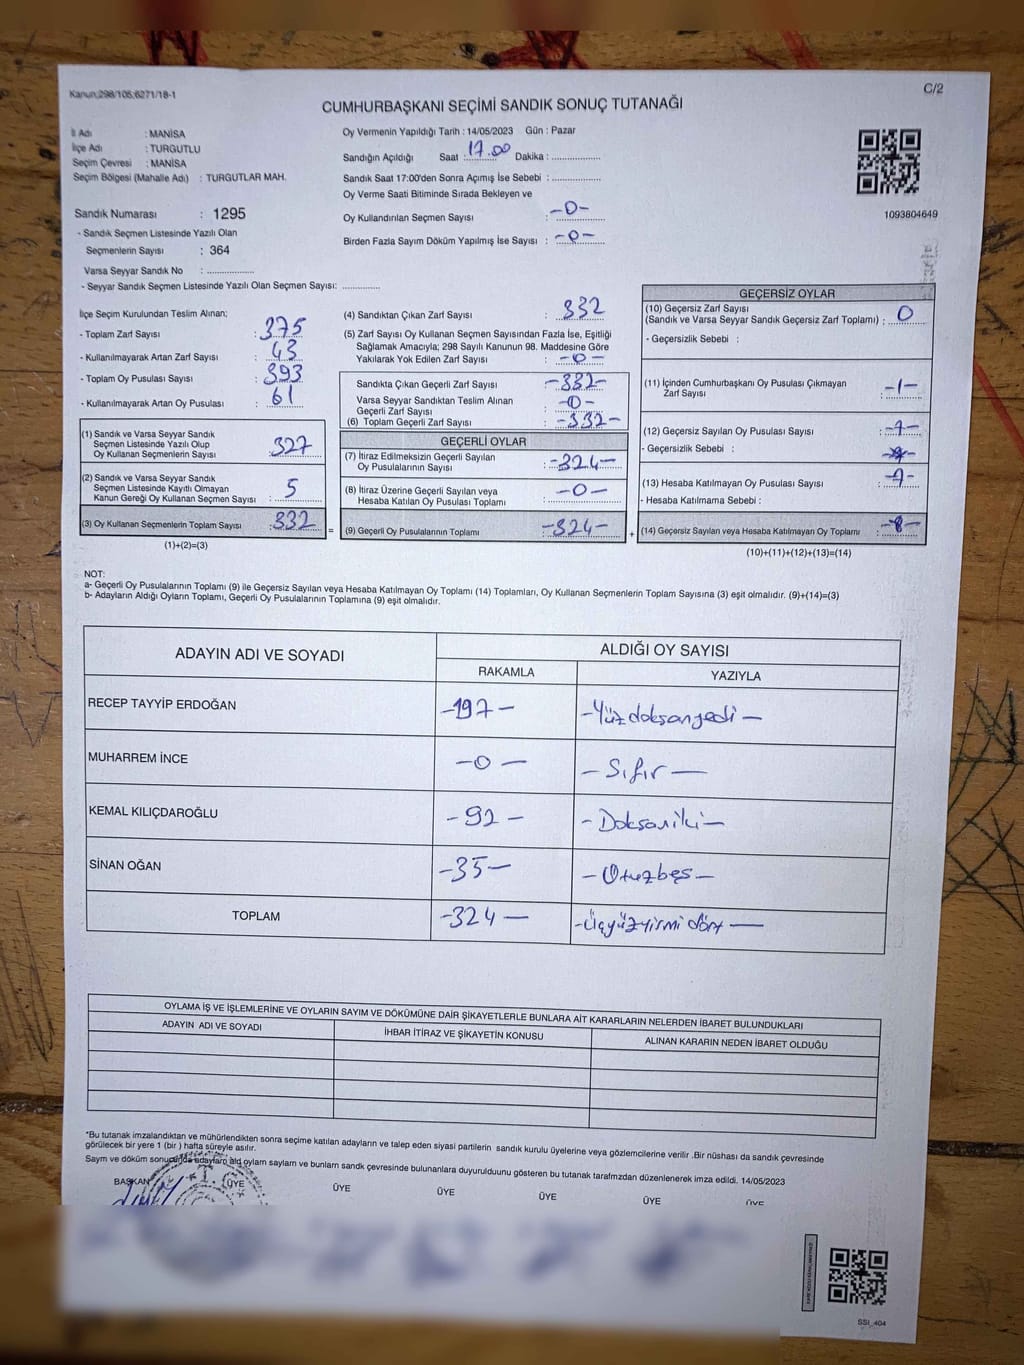 Kanun;298/105;6271/18-1
C/2
CUMHURBAŞKANI SEÇİMİ SANDIK SONUÇ TUTANAĞI
İl Adı : MANİSA
İlçe Adı : TURGUTLU
Seçim Çevresi : MANİSA
Seçim Bölgesi (Mahalle Adı) : TURGUTLAR MAH.
Sandık Numarası : 1295
- Sandık Seçmen Listesinde Yazılı Olan
Seçmenlerin Sayısı : 364
Varsa Seyyar Sandık No : ..................
- Seyyar Sandık Seçmen Listesinde Yazılı Olan Seçmen Sayısı: ..............
Oy Vermenin Yapıldığı Tarih : 14/05/2023 Gün : Pazar
Sandığın Açıldığı Saat : 17.00 Dakika : ..................
Sandık Saat 17:00'den Sonra Açımış İse Sebebi : ..................
Oy Verme Saati Bitiminde Sırada Bekleyen ve
Oy Kullandırılan Seçmen Sayısı : -0-
Birden Fazla Sayım Döküm Yapılmış İse Sayısı : -0-
1093804649
İlçe Seçim Kurulundan Teslim Alınan;
- Toplam Zarf Sayısı : 375
- Kullanılmayarak Artan Zarf Sayısı : 43
- Toplam Oy Pusulası Sayısı : 393
- Kullanılmayarak Artan Oy Pusulası : 61
(1) Sandık ve Varsa Seyyar Sandık
Seçmen Listesinde Yazılı Olup
Oy Kullanan Seçmenlerin Sayısı : 327
(2) Sandık ve Varsa Seyyar Sandık
Seçmen Listesinde Kayıtlı Olmayan
Kanun Gereği Oy Kullanan Seçmen Sayısı : 5
(3) Oy Kullanan Seçmenlerin Toplam Sayısı : 332
(1)+(2)=(3)
(4) Sandıktan Çıkan Zarf Sayısı : 332
(5) Zarf Sayısı Oy Kullanan Seçmen Sayısından Fazla İse, Eşitliği
Sağlamak Amacıyla; 298 Sayılı Kanunun 98. Maddesine Göre
Yakılarak Yok Edilen Zarf Sayısı : -0-
Sandıkta Çıkan Geçerli Zarf Sayısı : -332-
Varsa Seyyar Sandıktan Teslim Alınan
Geçerli Zarf Sayısı : -0-
(6) Toplam Geçerli Zarf Sayısı : -332-
GEÇERLİ OYLAR
(7) İtiraz Edilmeksizin Geçerli Sayılan
Oy Pusulalarının Sayısı : -324-
(8) İtiraz Üzerine Geçerli Sayılan veya
Hesaba Katılan Oy Pusulası Toplamı : -0-
= (9) Geçerli Oy Pusulalarının Toplamı -324- +
GEÇERSİZ OYLAR
(10) Geçersiz Zarf Sayısı
(Sandık ve Varsa Seyyar Sandık Geçersiz Zarf Toplamı) : 0
- Geçersizlik Sebebi :
(11) İçinden Cumhurbaşkanı Oy Pusulası Çıkmayan
Zarf Sayısı : -1-
(12) Geçersiz Sayılan Oy Pusulası Sayısı : -7-
- Geçersizlik Sebebi :
(13) Hesaba Katılmayan Oy Pusulası Sayısı :
- Hesaba Katılmama Sebebi :
(14) Geçersiz Sayılan veya Hesaba Katılmayan Oy Toplamı : -8-
(10)+(11)+(12)+(13)=(14)
NOT:
a- Geçerli Oy Pusulalarının Toplamı (9) ile Geçersiz Sayılan veya Hesaba Katılmayan Oy Toplamı (14) Toplamları, Oy Kullanan Seçmenlerin Toplam Sayısına (3) eşit olmalıdır. (9)+(14)=(3)
b- Adayların Aldığı Oyların Toplamı, Geçerli Oy Pusulalarının Toplamına (9) eşit olmalıdır.
ADAYIN ADI VE SOYADI
ALDIĞI OY SAYISI
RAKAMLA YAZIYLA
RECEP TAYYİP ERDOĞAN -197- -Yüzdoksanyedi-
MUHARREM İNCE -0- -Sıfır-
KEMAL KILIÇDAROĞLU -92- -Doksaniki-
SİNAN OĞAN -35- -Otuzbeş-
TOPLAM -324- -Üçyüzyirmi dört-
OYLAMA İŞ VE İŞLEMLERİNE VE OYLARIN SAYIM VE DÖKÜMÜNE DAİR ŞİKAYETLERLE BUNLARA AİT KARARLARIN NELERDEN İBARET BULUNDUKLARI
ADAYIN ADI VE SOYADI İHBAR İTİRAZ VE ŞİKAYETİN KONUSU ALINAN KARARIN NEDEN İBARET OLDUĞU
*Bu tutanak imzalandıktan ve mühürlendikten sonra seçime katılan adayların ve talep eden siyasi partilerin sandık kurulu üyelerine veya gözlemcilerine verilir .Bir nüshası da sandık çevresinde
görülecek bir yere 1 (bir ) hafta süreyle asılır.
Sayım ve döküm sonuçunda adayların ald oylarn sayların ve bunların sandık çevresinde bulunanlara duyurulduunu gösteren bu tutanak tarafmzdan düzenlenerek imza edildi. 14/05/2023
BAŞKAN ÜYE ÜYE ÜYE ÜYE ÜYE ÜYE
SSI_404